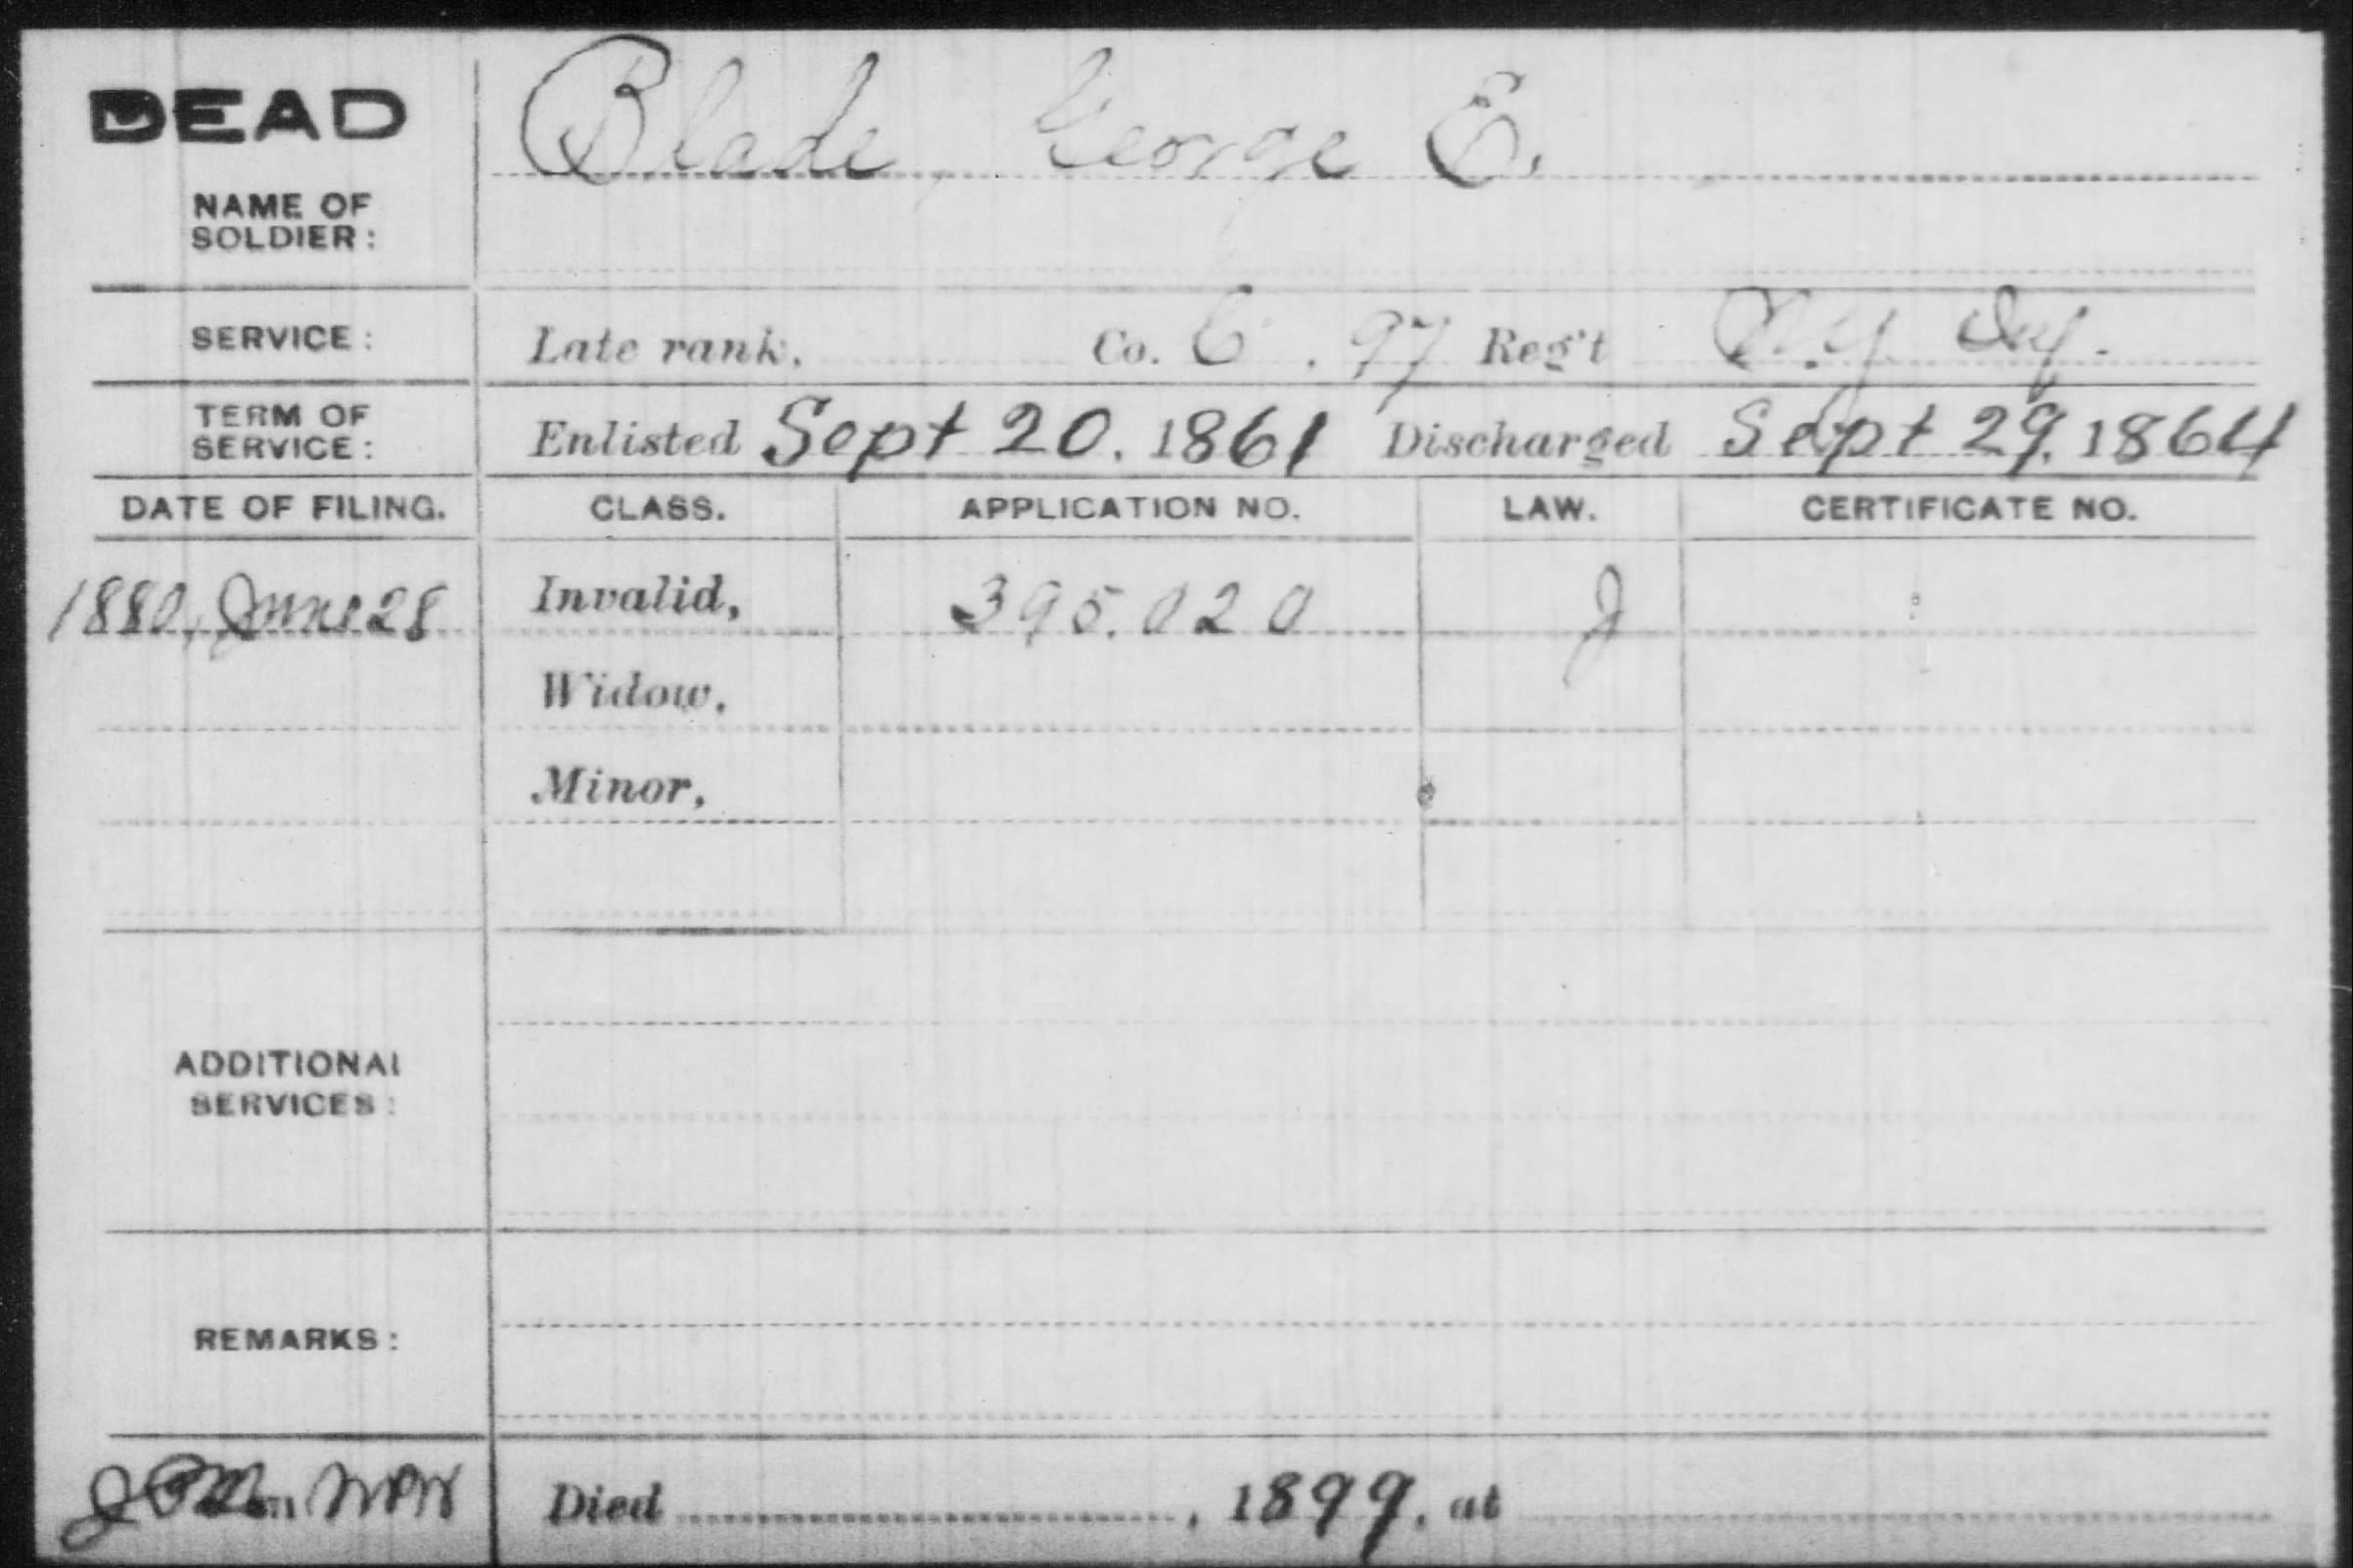 DEAD
Blade, George E.
NAME OF
SOLDIER:
SERVICE: Late rank, Co. C. 97 Reg't N.Y. Inf.
TERM OF
SERVICE: Enlisted Sept 20, 1861 Discharged Sept 29, 1864
DATE OF FILING. CLASS. APPLICATION NO. LAW. CERTIFICATE NO.
1880, June 28 Invalid, 395.020 J
Widow,
Minor,
ADDITIONAL
SERVICES:
REMARKS:
Died , 1899, at